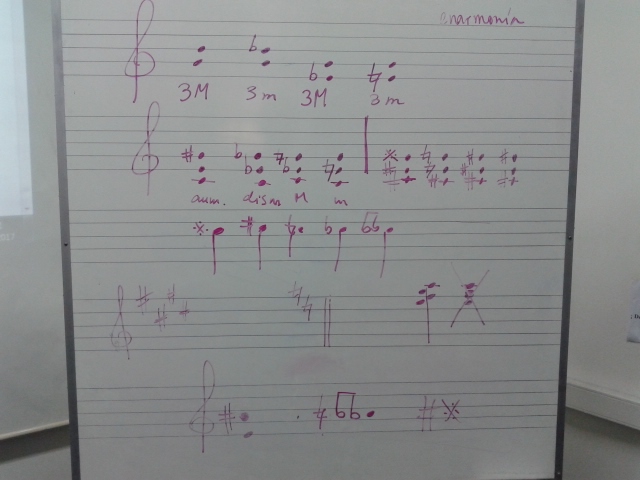 enarmonía
3M 3m 3M 3m
aum. dism M m